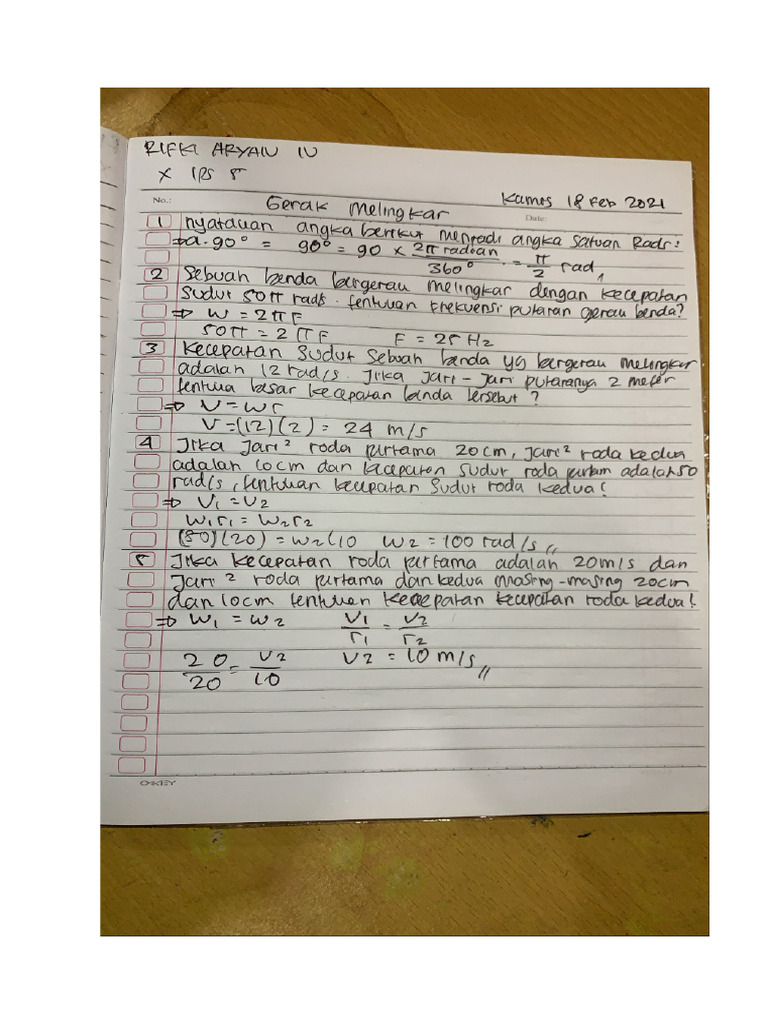 RIFKI ARYAN IV
X IPS 5
No.:
Kamis 18 Feb 2021
Gerak Melingkar
Date:
1 nyatakan angka berikut menjadi angka satuan Rads:
⇒ a. 90° = 90° = 90 × 2π radian / 360° = π / 2 rad
2 Sebuah benda bergerak melingkar dengan kecepatan
sudut 50π rad/s. tentukan frekuensi putaran gerak benda?
⇒ W = 2πF
50π = 2πF F = 25 Hz
3 Kecepatan sudut sebuah benda yg bergerak melingkar
adalah 12 rad/s. Jika Jari-Jari putaranya 2 meter
tentukan besar kecepatan benda tersebut?
⇒ V = Wr
V = (12)(2) = 24 m/s
4 Jika Jari² roda pertama 20cm, Jari² roda kedua
adalah 10cm dan kecepatan sudut roda pertam adalah 50
rad/s, tentukan kecepatan sudut roda kedua!
⇒ V1 = V2
W1r1 = W2r2
(50)(20) = W2(10 W2 = 100 rad/s //
5 Jika kecepatan roda pertama adalah 20m/s dan
Jari² roda pertama dan kedua masing-masing 20cm
dan 10cm tentukan kecepatan kecepatan roda kedua!
⇒ W1 = W2 V1 / r1 = V2 / r2
20 / 20 = V2 / 10 V2 = 10 m/s //
OKEY